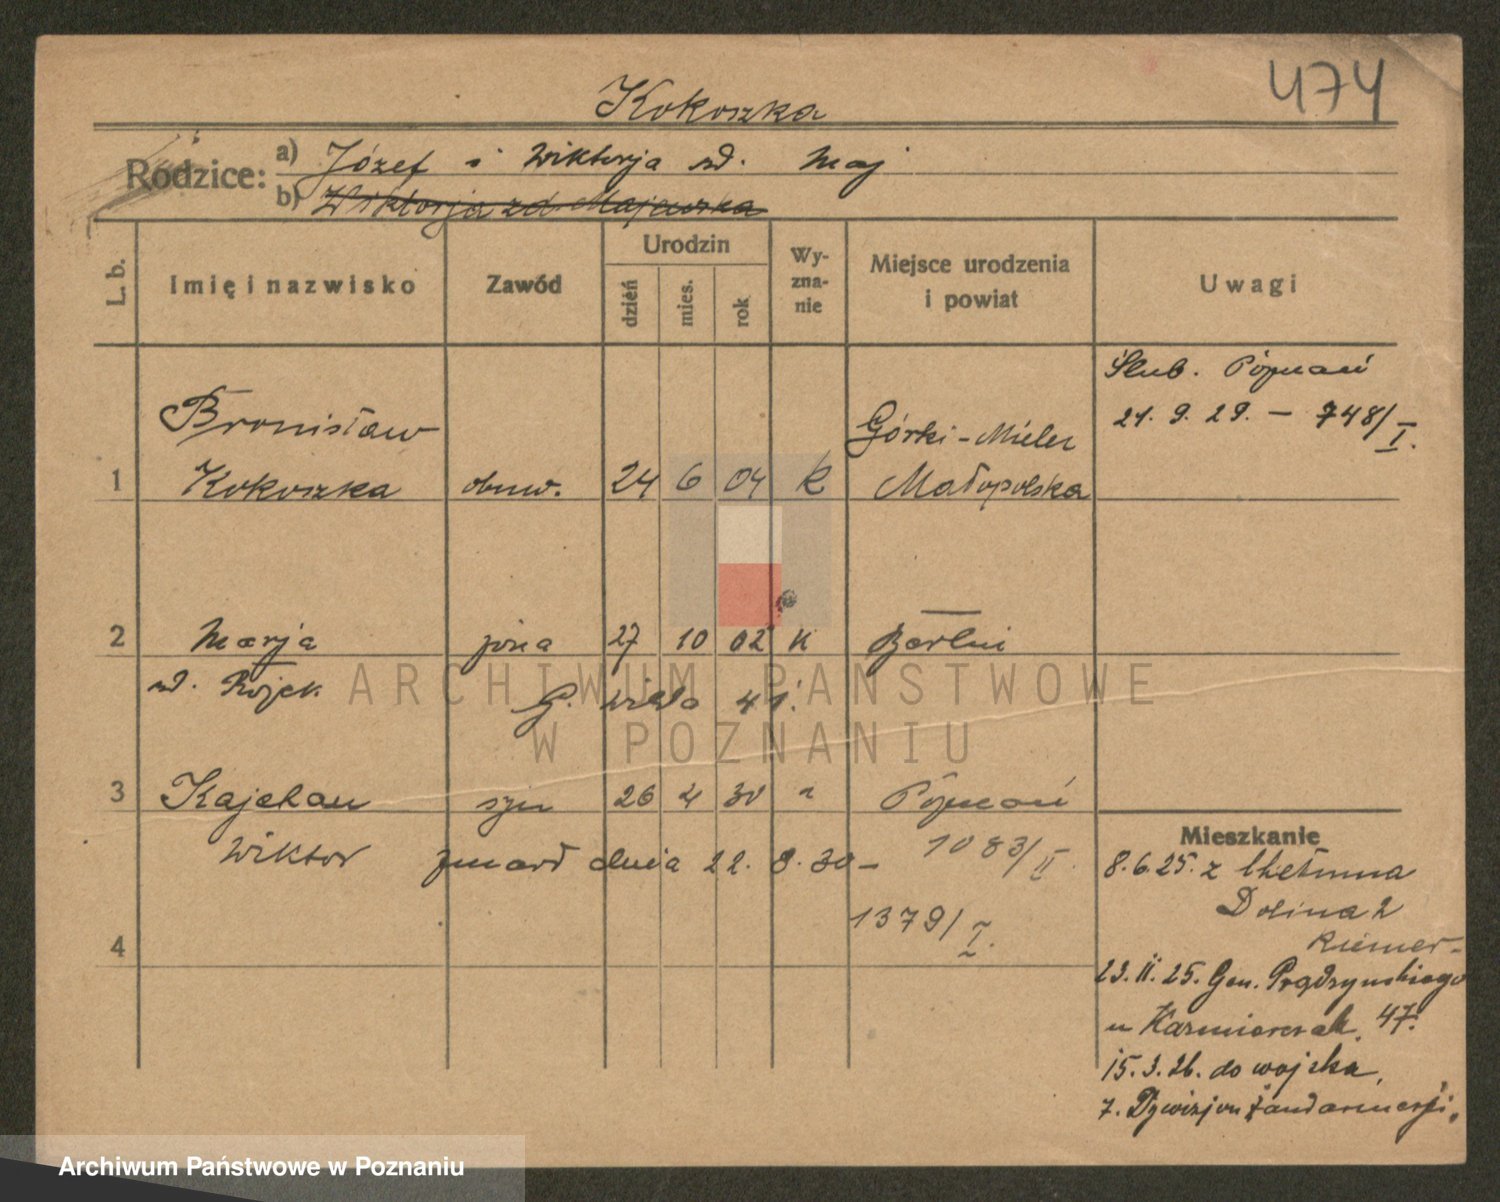 474
Kokoszka
Rodzice: a) Józef i Wiktorja zd. Maj
b) Wiktorja zd. Majewska
L. b.
Imię i nazwisko
Zawód
Urodzin
dzień
mies.
rok
Wy-
zna-
nie
Miejsce urodzenia
i powiat
Uwagi
Ślub. Poznań
21. 9. 29. – 748/I.
Bronisław
Górki - Mielec
1 Kokoszka obuw. 24 6 04 k Małopolska
2 Marja żona 27 10 02 k Berlin
zd. Rojek
G. Wilda 41.
3 Kajetan syn 26 4 30 " Poznań
Wiktor zmarł dnia 22. 8. 30 – 1083/II.
1379/I.
4
Mieszkanie
8.6.25. z Chełmna
Dolina 2
Riemer -
23. II. 25. Gen. Prądzyńskiego
u Kazmierczak. 47.
15. 3. 26. do wojska,
7. Dywizjon żandarmerji.
ARCHIWUM PAŃSTWOWE
W POZNANIU
Archiwum Państwowe w Poznaniu